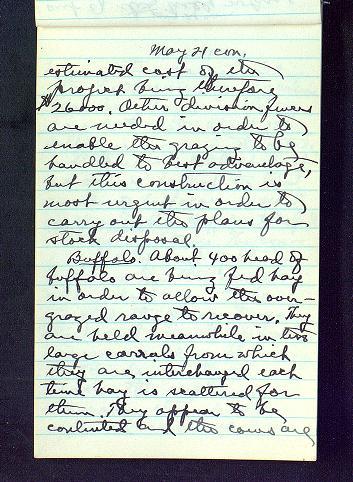 May 21 con.
estimated cost of the
project being therefore
$26000. Other division fences
are needed in order to
enable the grazing to be
handled to best advantage,
but this construction is
most urgent in order to
carry out the plans for
stock disposal.
Buffalo. About 400 head of
buffalo are being fed hay
in order to allow the over-
grazed range to recover. They
are held meanwhile in two
large corrals from which
they are interchanged each
time hay is scattered for
them. They appear to be
contented and the cows are